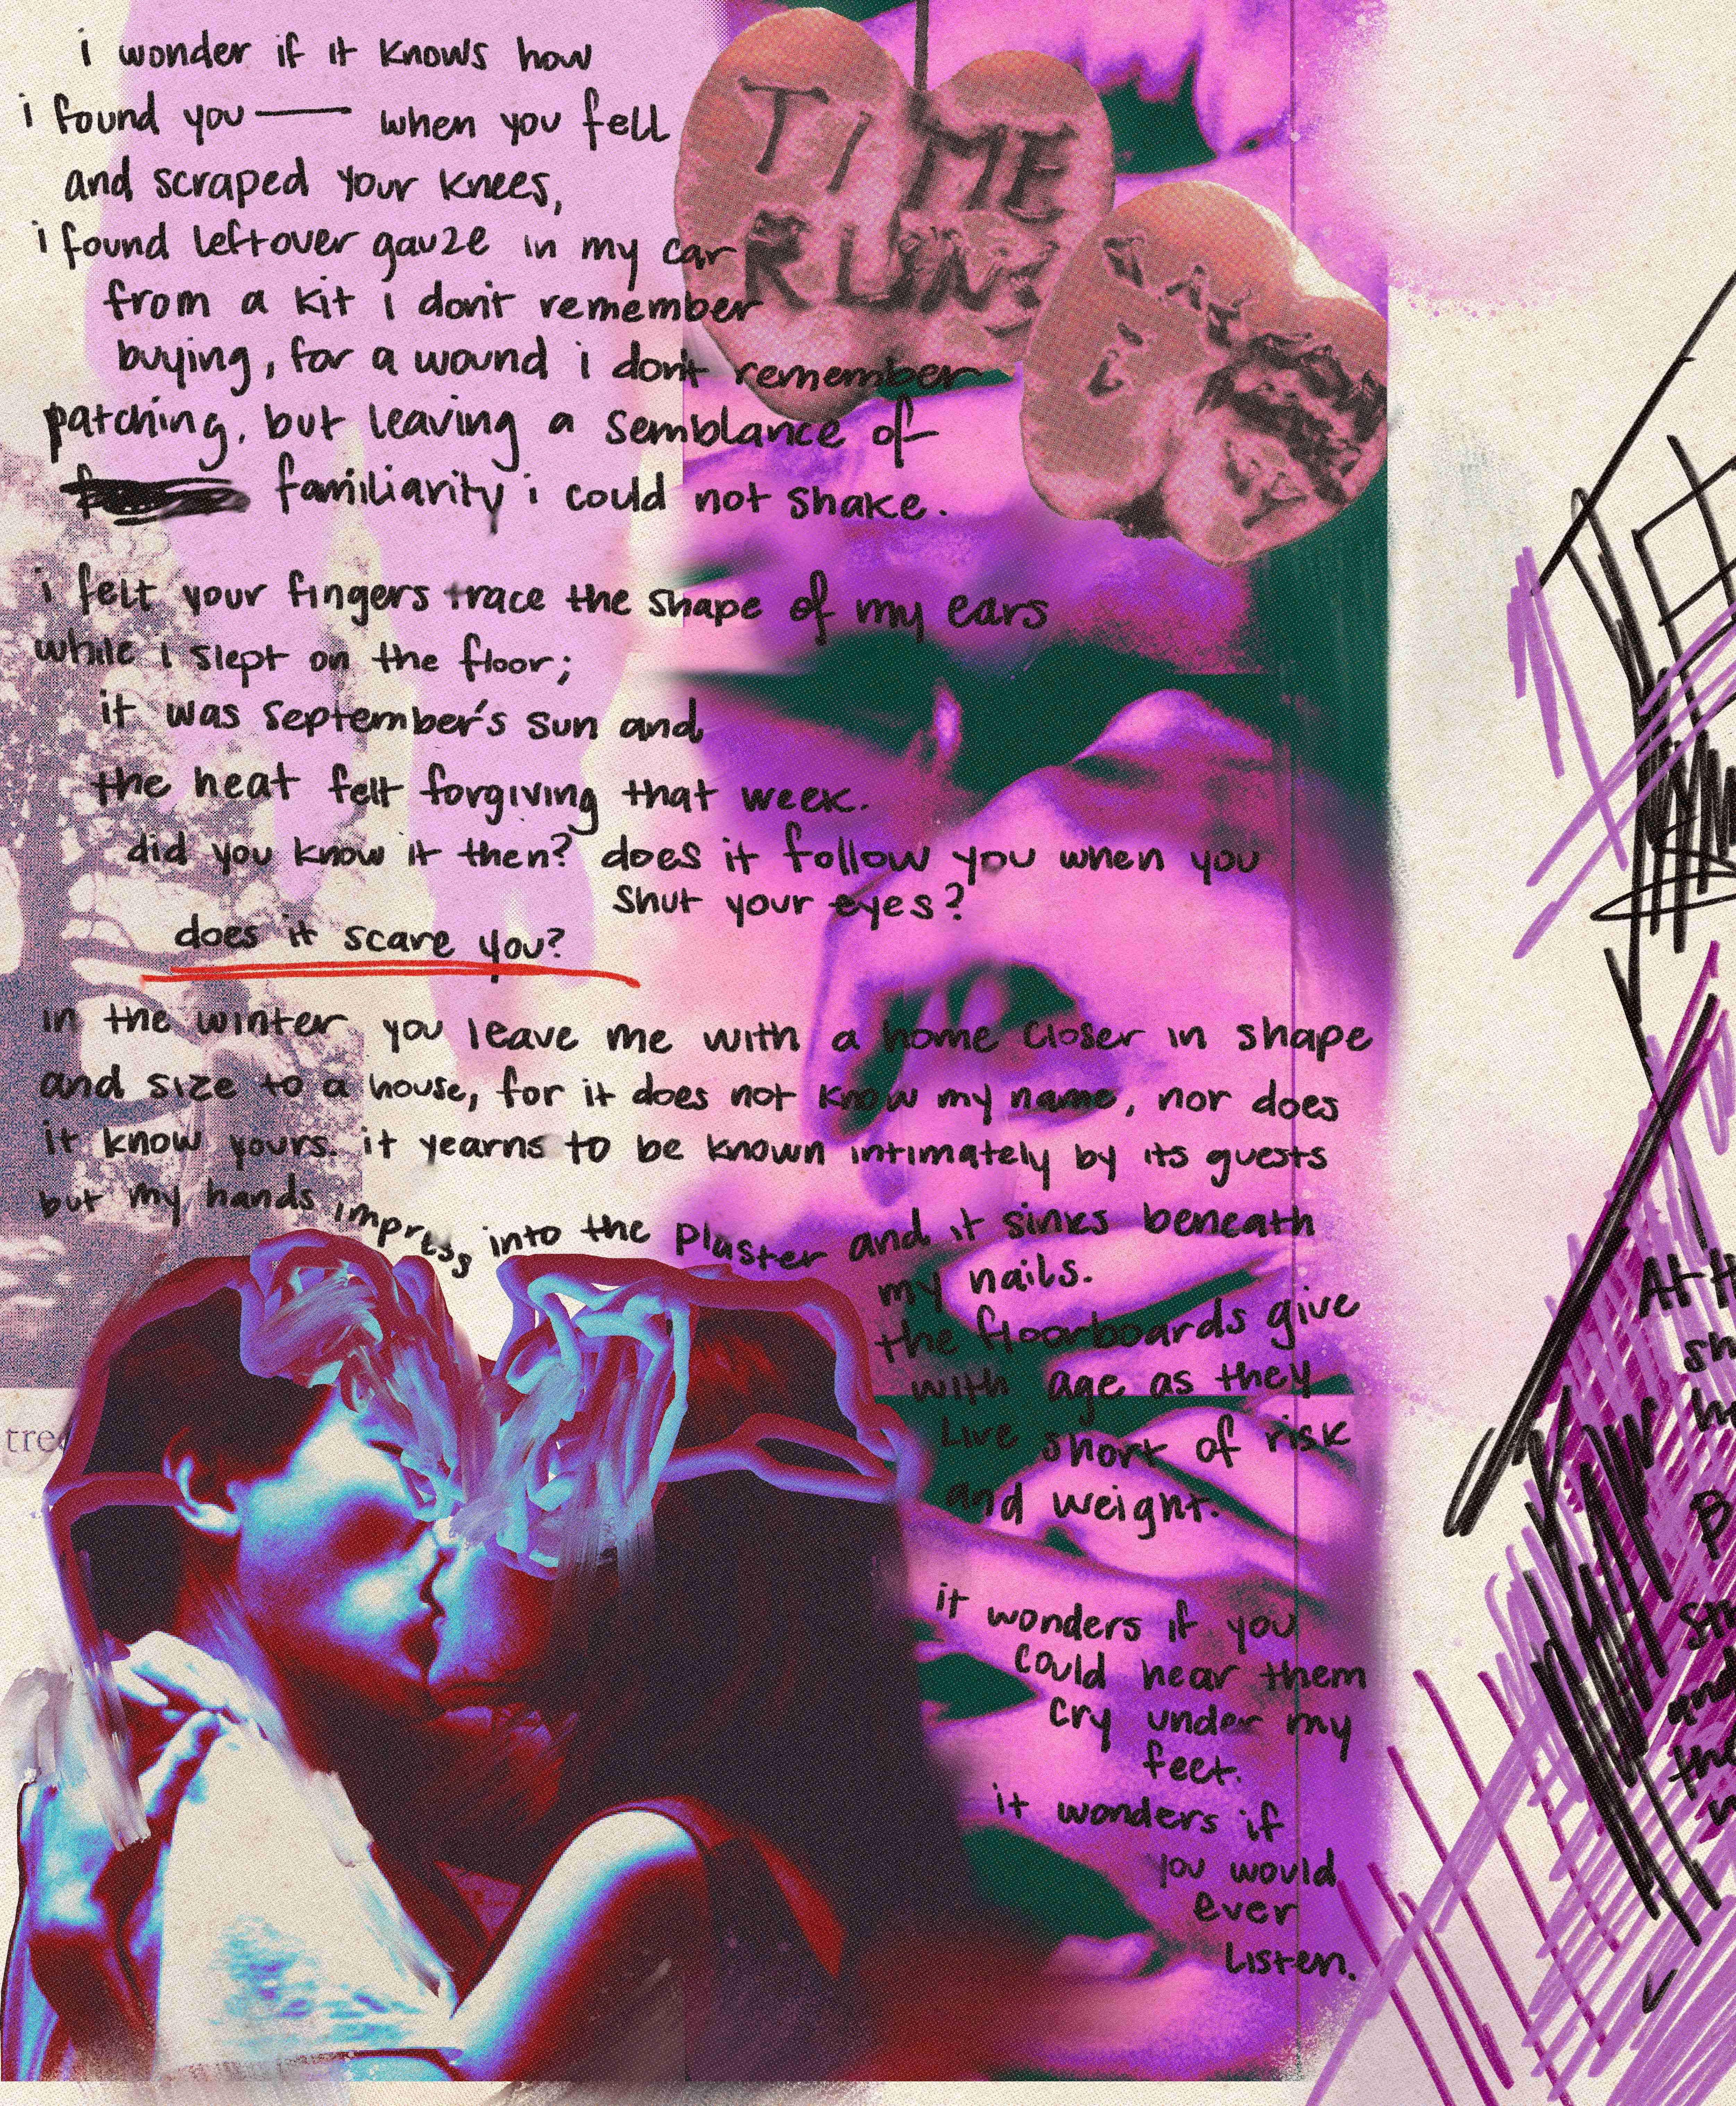 i wonder if it knows how
i found you — when you fell
and scraped your knees,
i found leftover gauze in my car
from a kit i don't remember
buying, for a wound i don't remember
patching, but leaving a semblance of
familiarity i could not shake.
i felt your fingers trace the shape of my ears
while i slept on the floor;
it was september's sun and
the heat felt forgiving that week.
did you know it then? does it follow you when you
shut your eyes?
does it scare you?
in the winter you leave me with a home closer in shape
and size to a house, for it does not know my name, nor does
it know yours. it yearns to be known intimately by its guests
but my hands impress into the plaster and it sinks beneath
my nails.
the floorboards give
with age as they
live short of risk
and weight.
it wonders if you
could hear them
cry under my
feet.
it wonders if
you would
ever
listen.
TIME
RUNS